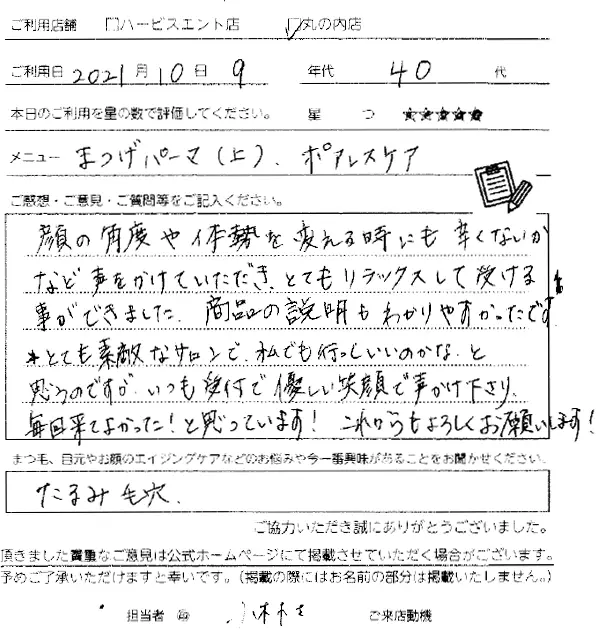 ご利用店舗 □ハービスエント店 ☑丸の内店
ご利用日 2021月10日9 年代 40 代
本日のご利用を星の数で評価してください。 星 つ ★★★★★
メニュー まつげパーマ(上)、ポアレスケア
ご感想・ご意見・ご質問等をご記入ください。
顔の角度や体勢を変える時にも辛くないか
など声をかけていただき、とてもリラックスして受ける
事ができました。商品の説明もわかりやすかったです
*とても素敵なサロンで、私でも行っていいのかな、と
思うのですが、いつも受付で優しい笑顔で声かけ下さり、
毎回来てよかった!と思っています! これからもよろしくお願いします!
まつも、目元やお顔のエイジングケアなどのお悩みや今一番興味があることをお聞かせください。
たるみ毛穴、
ご協力いただき誠にありがとうございました。
頂きました貴重なご意見は公式ホームページにて掲載させていただく場合がございます。
予めご了承いただけますと幸いです。(掲載の際にはお名前の部分は掲載いたしません。)
担当者 ご来店動機